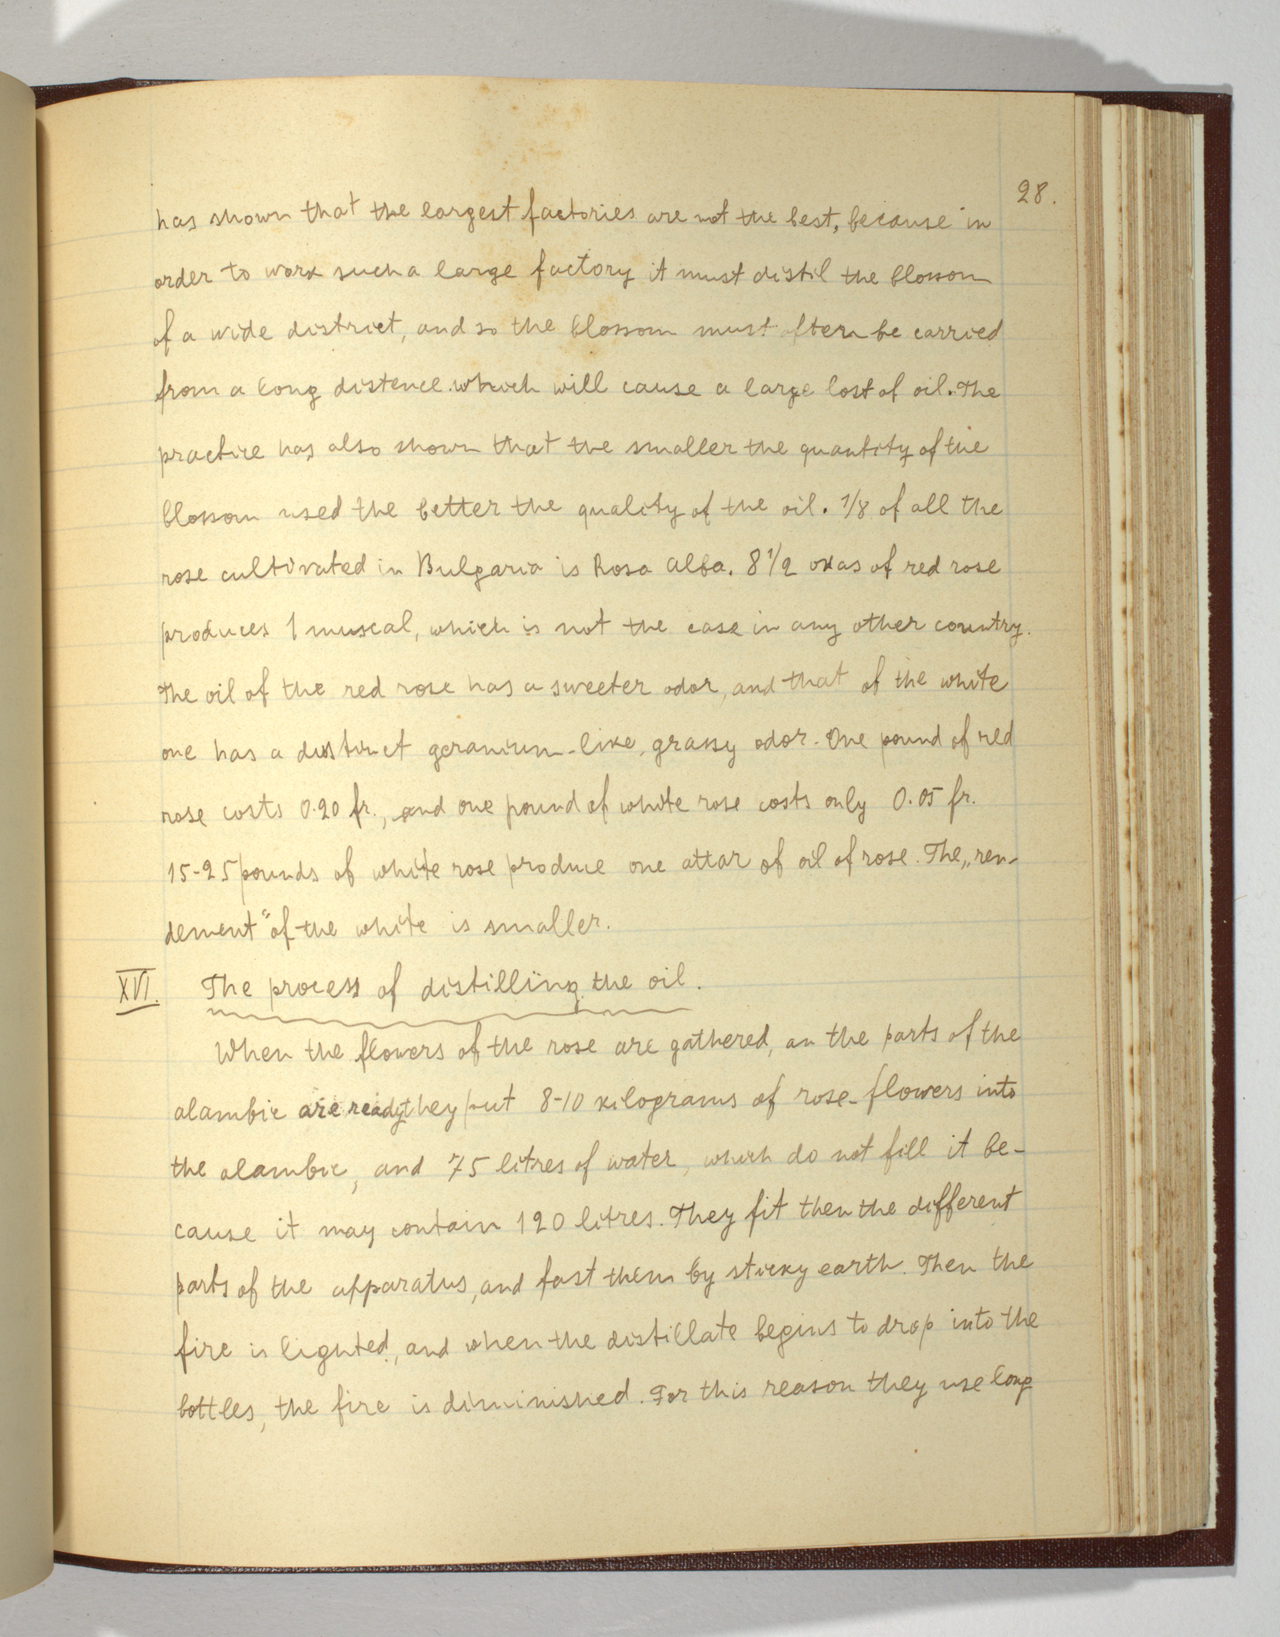 28.
has shown that the largest factories are not the best, because in
order to work such a large factory it must distil the blossom
of a wide district, and so the blossom must often be carried
from a long distence which will cause a large lost of oil. The
practice has also shown that the smaller the quantity of the
blossom used the better the quality of the oil. 1/8 of all the
rose cultivated in Bulgaria is Rosa Alba. 8 1/2 okas of red rose
produces 1 muscal, which is not the case in any other country.
The oil of the red rose has a sweeter odor, and that of the white
one has a distinct geranium-like, grassy odor. One pound of red
rose costs 0.20 fr., and one pound of white rose costs only 0.05 fr.
15-25 pounds of white rose produce one attar of oil of rose. The „ren-
dement“ of the white is smaller.
XVI. The process of distilling the oil.
When the flowers of the rose are gathered, an the parts of the
alambic are ready they put 8-10 kilograms of rose-flowers into
the alambic, and 75 litres of water, which do not fill it be-
cause it may contain 120 litres. They fit then the different
parts of the apparatus, and fast them by sticky earth. Then the
fire is lighted, and when the distillate begins to drop into the
bottles, the fire is diminished. For this reason they use long